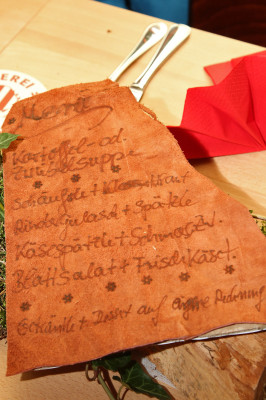 EREI
Menü
Kartoffel- od.
Zwiebelsuppe
Schäufele + Kloß
Rindsgulasch + Spätzle
Käsespätzle + Schmelzzw.
Blattsalat + Frischkäse
Getränke + Dessert auf eigene Rechnung